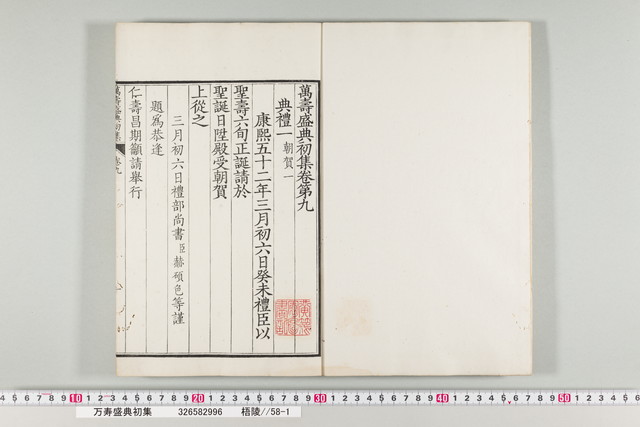 萬壽盛典初集卷第九
典禮一 朝賀一
康熙五十二年三月初六日癸未禮臣以
聖壽六旬正誕請於
聖誕日陞殿受朝賀
上從之
三月初六日禮部尚書臣赫碩色等謹
題為恭逢
仁壽昌期籲請舉行
萬壽盛典初集 卷九
4 5 6 7 8 9 10 1 2 3 4 5 6 7 8 9 20 1 2 3 4 5 6 7 8 9 30 1 2 3 4 5 6 7 8 9 40 1 2 3 4 5 6 7 8 9 50 1 2 3 4 5 6
万寿盛典初集 326582996 梧陵//58-1